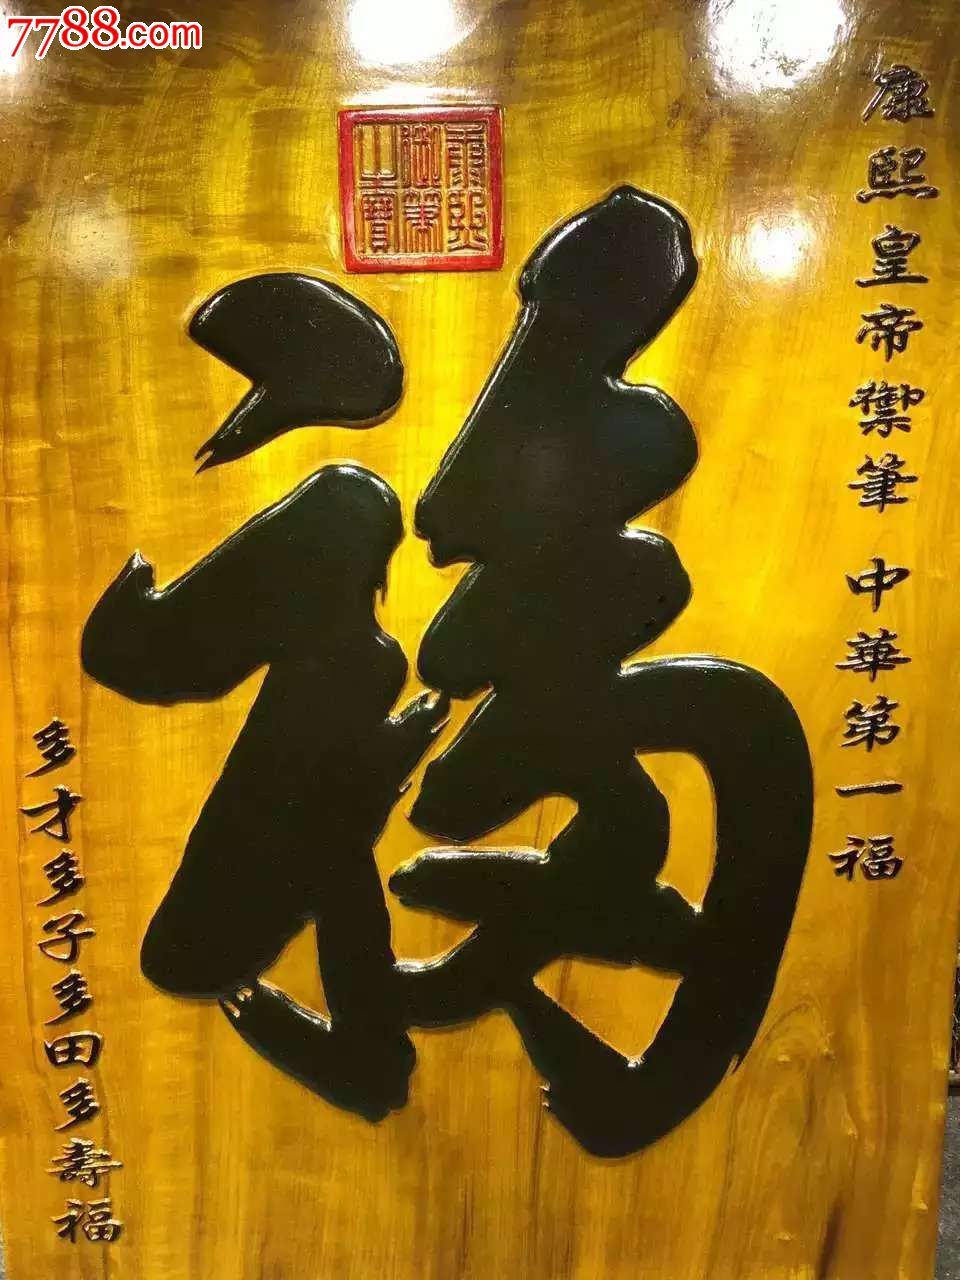 7788.com
康熙御筆之寶
康熙皇帝禦筆 中華第一福
福
多才多子多田多壽福